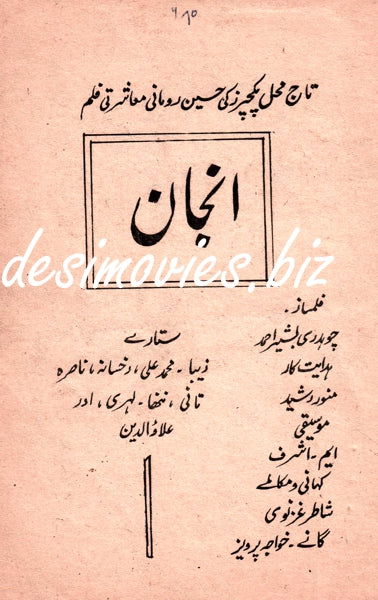 ۶۸۰
تاج محل پکچرز کی حسین رومانی معاشرتی فلم
انجان
desimovies.biz
فلمساز۔
چوہدری بشیر احمد
ہدایت کار
منور رشید
موسیقی
ایم۔ اشرف
کہانی و مکالمے
شاطر غزنوی
گانے۔ خواجہ پرویز
ستارے
زیبا۔ محمد علی، رخسانہ، ناصرہ
تانی، ننھا۔ لہری، اور
علاؤالدین